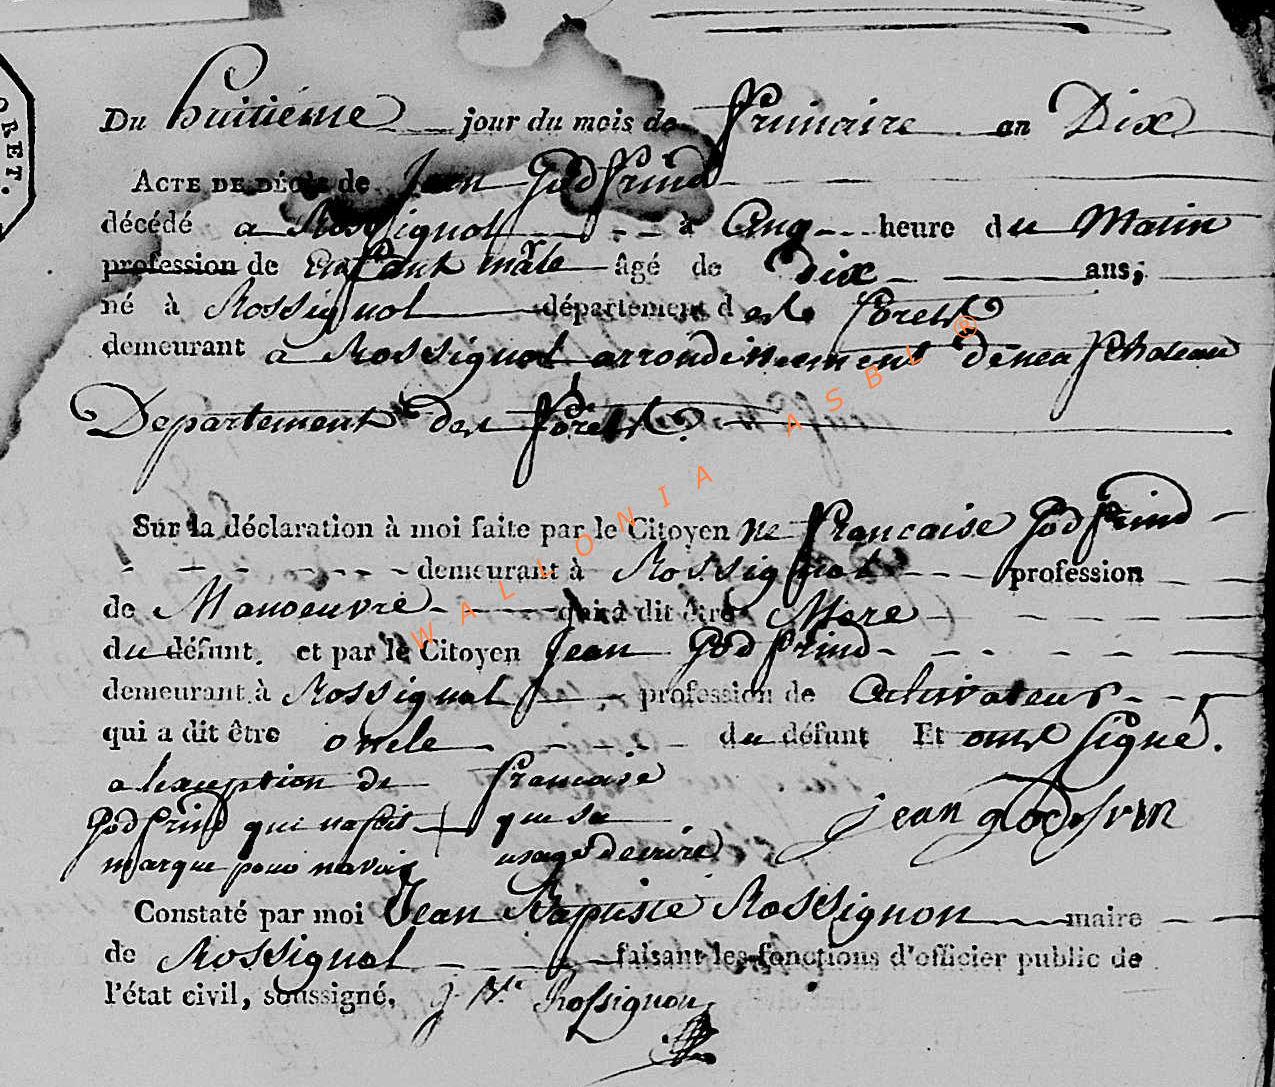 Du huitième jour du mois de frimaire an Dix
ACTE DE DÉCÈS de Jean Godfrind
décédé a Rossignol à Cinq heure du Matin
profession de Enfant mâle âgé de dix ans,
né à Rossignol département des forets
demeurant à Rossignol arrondissement de neufchateau
Departement des forets
Sur la déclaration à moi faite par le Citoyenne francaise Godfrind
demeurant à Rossignol profession
de Manoeuvre qui a dit être Mere
du défunt, et par le Citoyen Jean Godfrind
demeurant à Rossignol profession de Cultivateur
qui a dit être oncle du défunt Et ont signé.
a lexception de francaise
Godfrind qui na fait + que sa
marque pour navoir usage decrire
jean godefrin
Constaté par moi Jean Baptiste Rossignon maire
de Rossignol faisant les fonctions d'officier public de
l'état civil, soussigné. J Bte Rossignon
WALLONIA ASBL ®